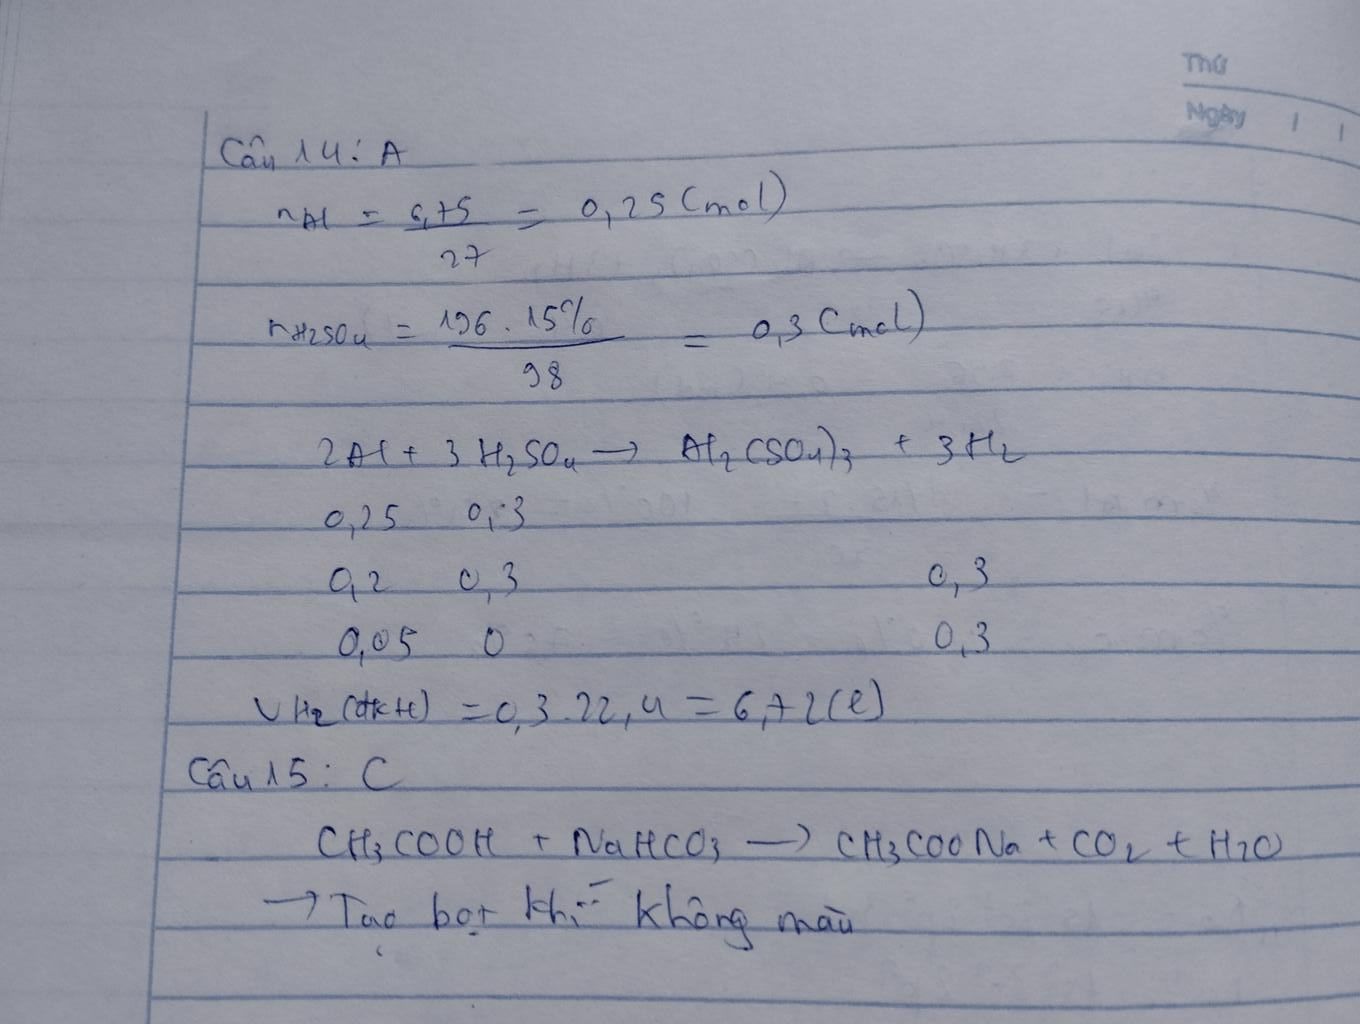 Thứ
Ngày / /
Câu 14: A
nAl = 6,75/27 = 0,25 (mol)
nH2SO4 = 196.15%/98 = 0,3 (mol)
2Al + 3H2SO4 → Al2(SO4)3 + 3H2
0,25 0,3
0,2 0,3 0,3
0,05 0 0,3
VH2 (đktc) = 0,3.22,4 = 6,72(l)
Câu 15: C
CH3COOH + NaHCO3 → CH3COONa + CO2 + H2O
→ Tạo bọt khí không màu